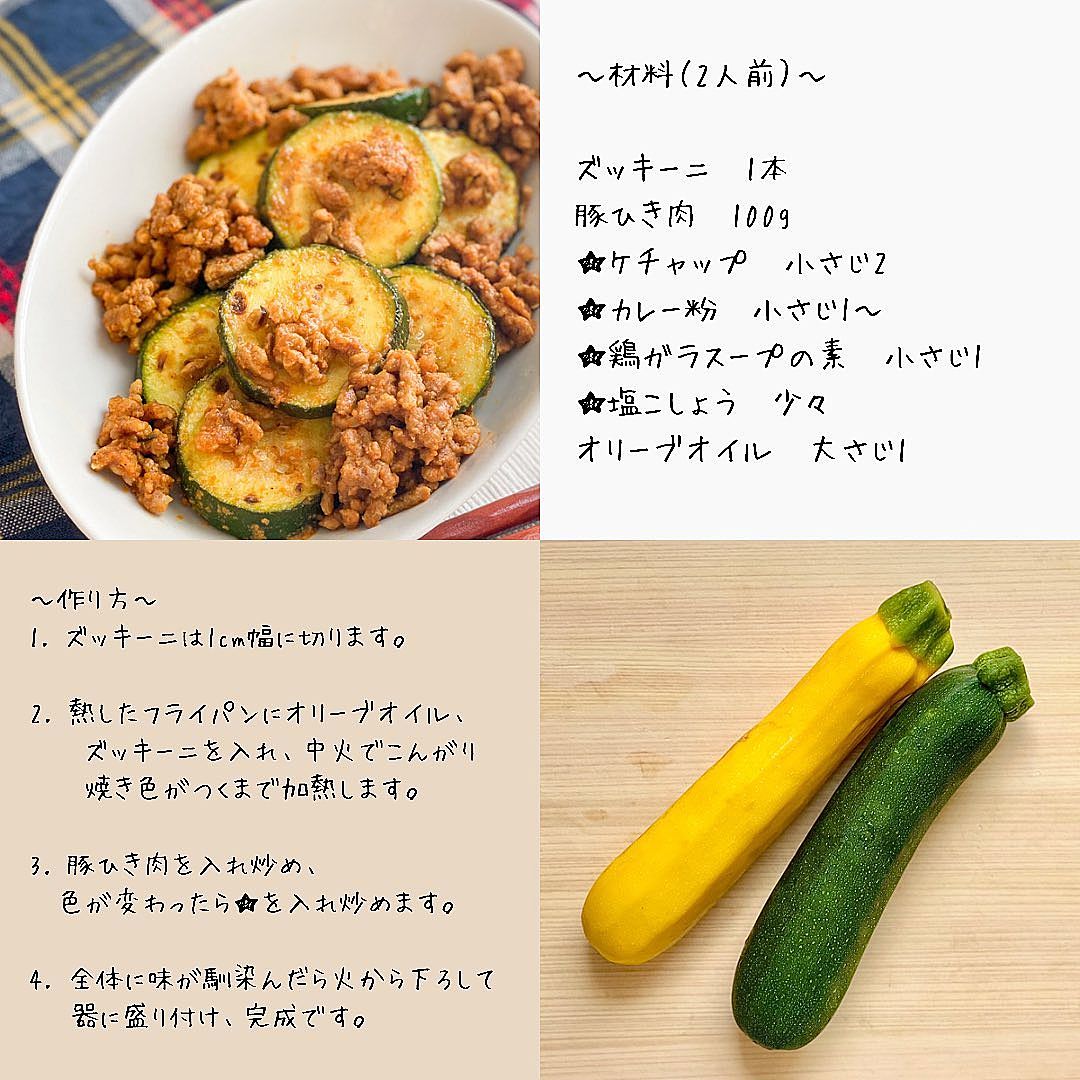 ～材料(2人前)～
ズッキーニ　1本
豚ひき肉　100g
★ケチャップ　小さじ2
★カレー粉　小さじ1～
★鶏ガラスープの素　小さじ1
★塩こしょう　少々
オリーブオイル　大さじ1
～作り方～
1. ズッキーニは1cm幅に切ります。
2. 熱したフライパンにオリーブオイル、
ズッキーニを入れ、中火でこんがり
焼き色がつくまで加熱します。
3. 豚ひき肉を入れ炒め、
色が変わったら★を入れ炒めます。
4. 全体に味が馴染んだら火から下ろして
器に盛り付け、完成です。